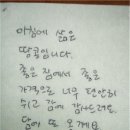 아침에 삶은
땅콩입니다.
좋은 집에서 좋은
가격으로 너무 편안히
쉬고 감에 감사드려요.
담에 또 올께요